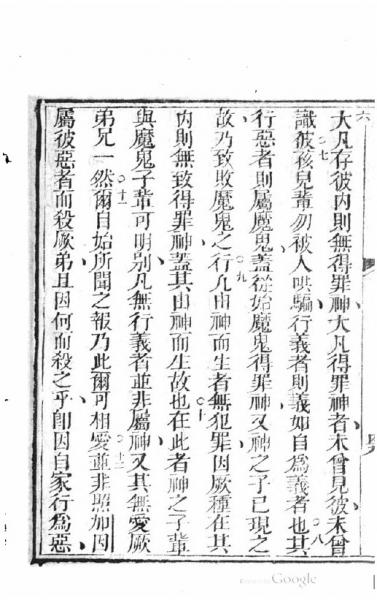 六
大凡存彼内則無得罪神大凡得罪神者未曾見彼未曾
○七
識彼孩兒輩勿被人哄騙行義者則義如自為義者也其
○八
行惡者則屬魔鬼蓋從始魔鬼得罪神又神之子已現之
故乃致敗魔鬼之行凡由神而生者無犯罪因厥種在其
○九
内則無致得罪神蓋其由神而生故也在此者神之子輩
○十
與魔鬼子輩可明別凡無行義者並非屬神又其無愛厥
弟兄一然爾自始所聞之報乃此爾可相愛並非照加因
○十一
○十二
屬彼惡者而殺厥弟且因何而殺之乎即因自家行為惡
Google